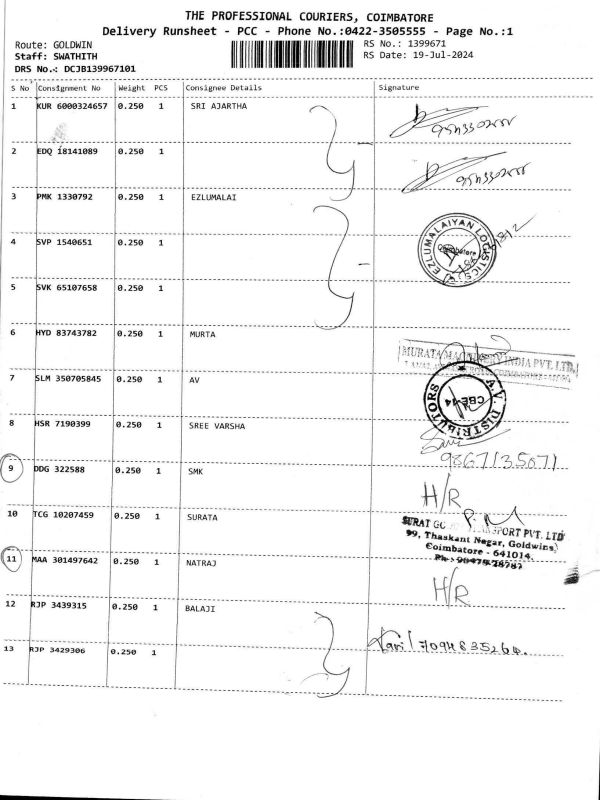 THE PROFESSIONAL COURIERS, COIMBATORE
Delivery Runsheet - PCC - Phone No.:0422-3505555 - Page No.:1
Route: GOLDWIN
RS No.: 1399671
Staff: SWATHITH
RS Date: 19-Jul-2024
DRS No.: DCJB139967101
S No Consignment No Weight PCS Consignee Details Signature
1 KUR 6000324657 0.250 1 SRI AJARTHA
2 EDQ 18141089 0.250 1
3 PMK 1330792 0.250 1 EZLUMALAI
EZLUMALAIYAN LOGISTICS
Coimbatore
4 SVP 1540651 0.250 1
5 SVK 65107658 0.250 1
6 HYD 83743782 0.250 1 MURTA
MURATA MACHINERY INDIA PVT. LTD.
7 SLM 350705845 0.250 1 AV
A.V. DISTRIBUTORS
CBE-14
8 HSR 7190399 0.250 1 SREE VARSHA
9867135071
9 DDG 322588 0.250 1 SMK
H/R
10 TCG 10207459 0.250 1 SURATA
P.M
SURAT TRANSPORT PVT. LTD
99, Thaskant Nagar, Goldwins,
Coimbatore - 641014.
11 MAA 301497642 0.250 1 NATRAJ
H/R
12 RJP 3439315 0.250 1 BALAJI
7094835264.
13 RJP 3429306 0.250 1